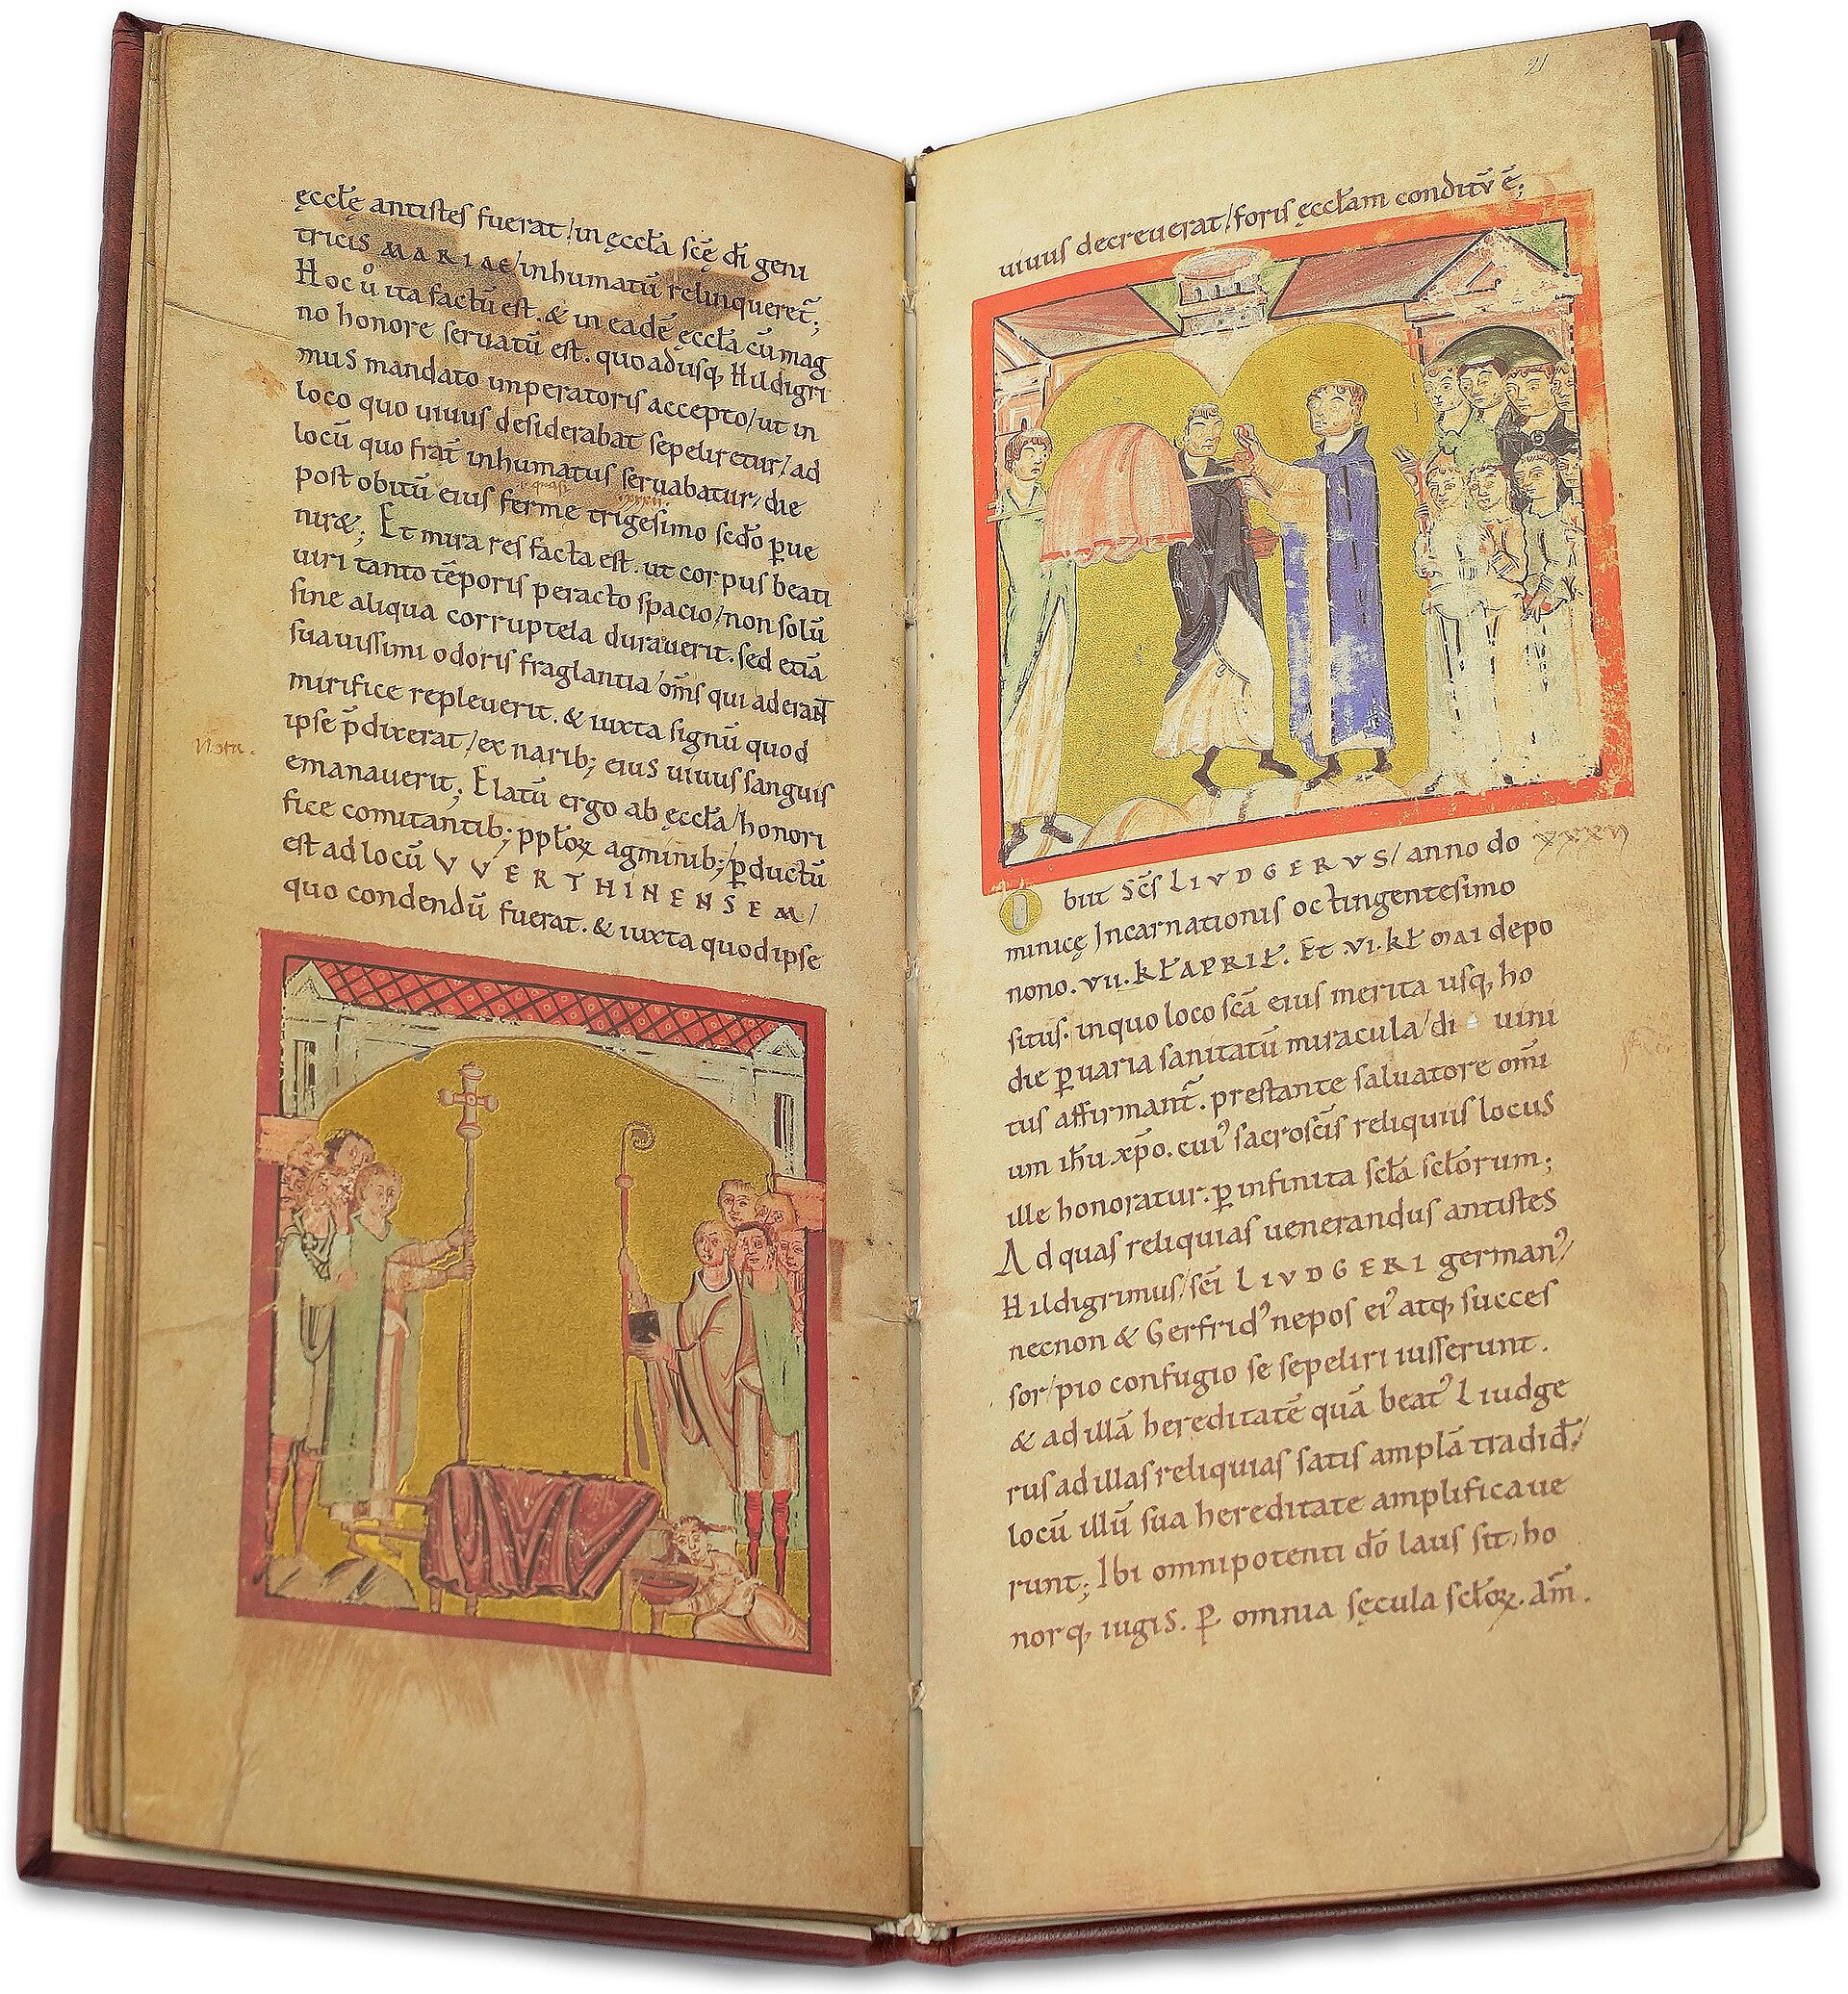 ęccłę antistes fuerat / in ęccła scę di geni
tricis MARIAE / inhumatū relinqueret̄;
Hoc ů ita factū est. & in eadē ęccła cū mag
no honore seruatū est. quoadusq, Hildigri
mus mandato imperatoris accepto / ut in
loco quo uiuus desiderabat sepeliretur / ad
locū quo frat̄ inhumatus seruabatur / die
post obitū eius ferme trigesimo scdo p̱ue
niret; Et mira res facta est. ut corpus beati
uiri tanto tēporis peracto spacio / non solū
sine aliqua corruptela durauerit. sed etiā
suauissimi odoris fraglantia / om̄s qui aderant
mirifice repleuerit. & iuxta signū quod
ipse p̄dixerat / ex narib; eius uiuus sanguis
Nota.
emanauerit; Elatū ergo ab ęccła / honori
fice comitantib; pplorꝝ agminib; / p̱ductū
est ad locū VVERTHINENSEM /
quo condendū fuerat. & iuxta quod ipse
21
uiuus decreuerat / foris ęccłam conditū ē;
Obiit Sc̄s LIVDGERVS / anno do
xxxii
minicę Incarnationis octingentesimo
nono. VII. kł APRIŁ. Et .VI. kł MAI depo
situs. in quo loco scā eius merita usq, ho
die p̱ uaria sanitatū miracula / di uini
tus affirmant̄. prestante saluatore omi
um ihu xp̄o. cuiꝰ sacroscīs reliquiis locus
ille honoratur. p̱ infinita scła scłorum;
Ad quas reliquias uenerandus antistes
Hildigrimus / sci LIVDGERI germanꝰ /
necnon & Gerfridꝰ nepos eiꝰ atq, succes
sor / pio confugio se sepeliri iusserunt.
& ad illā hereditatē quā beatꝰ Liudge
rus ad illas reliquias satis amplā tradid̄ /
locū illū sua hereditate amplificaue
runt; Ibi omnipotenti dō laus sit / ho
norq, iugis. P̱ omnia sęcula scłorꝝ. Am̄.